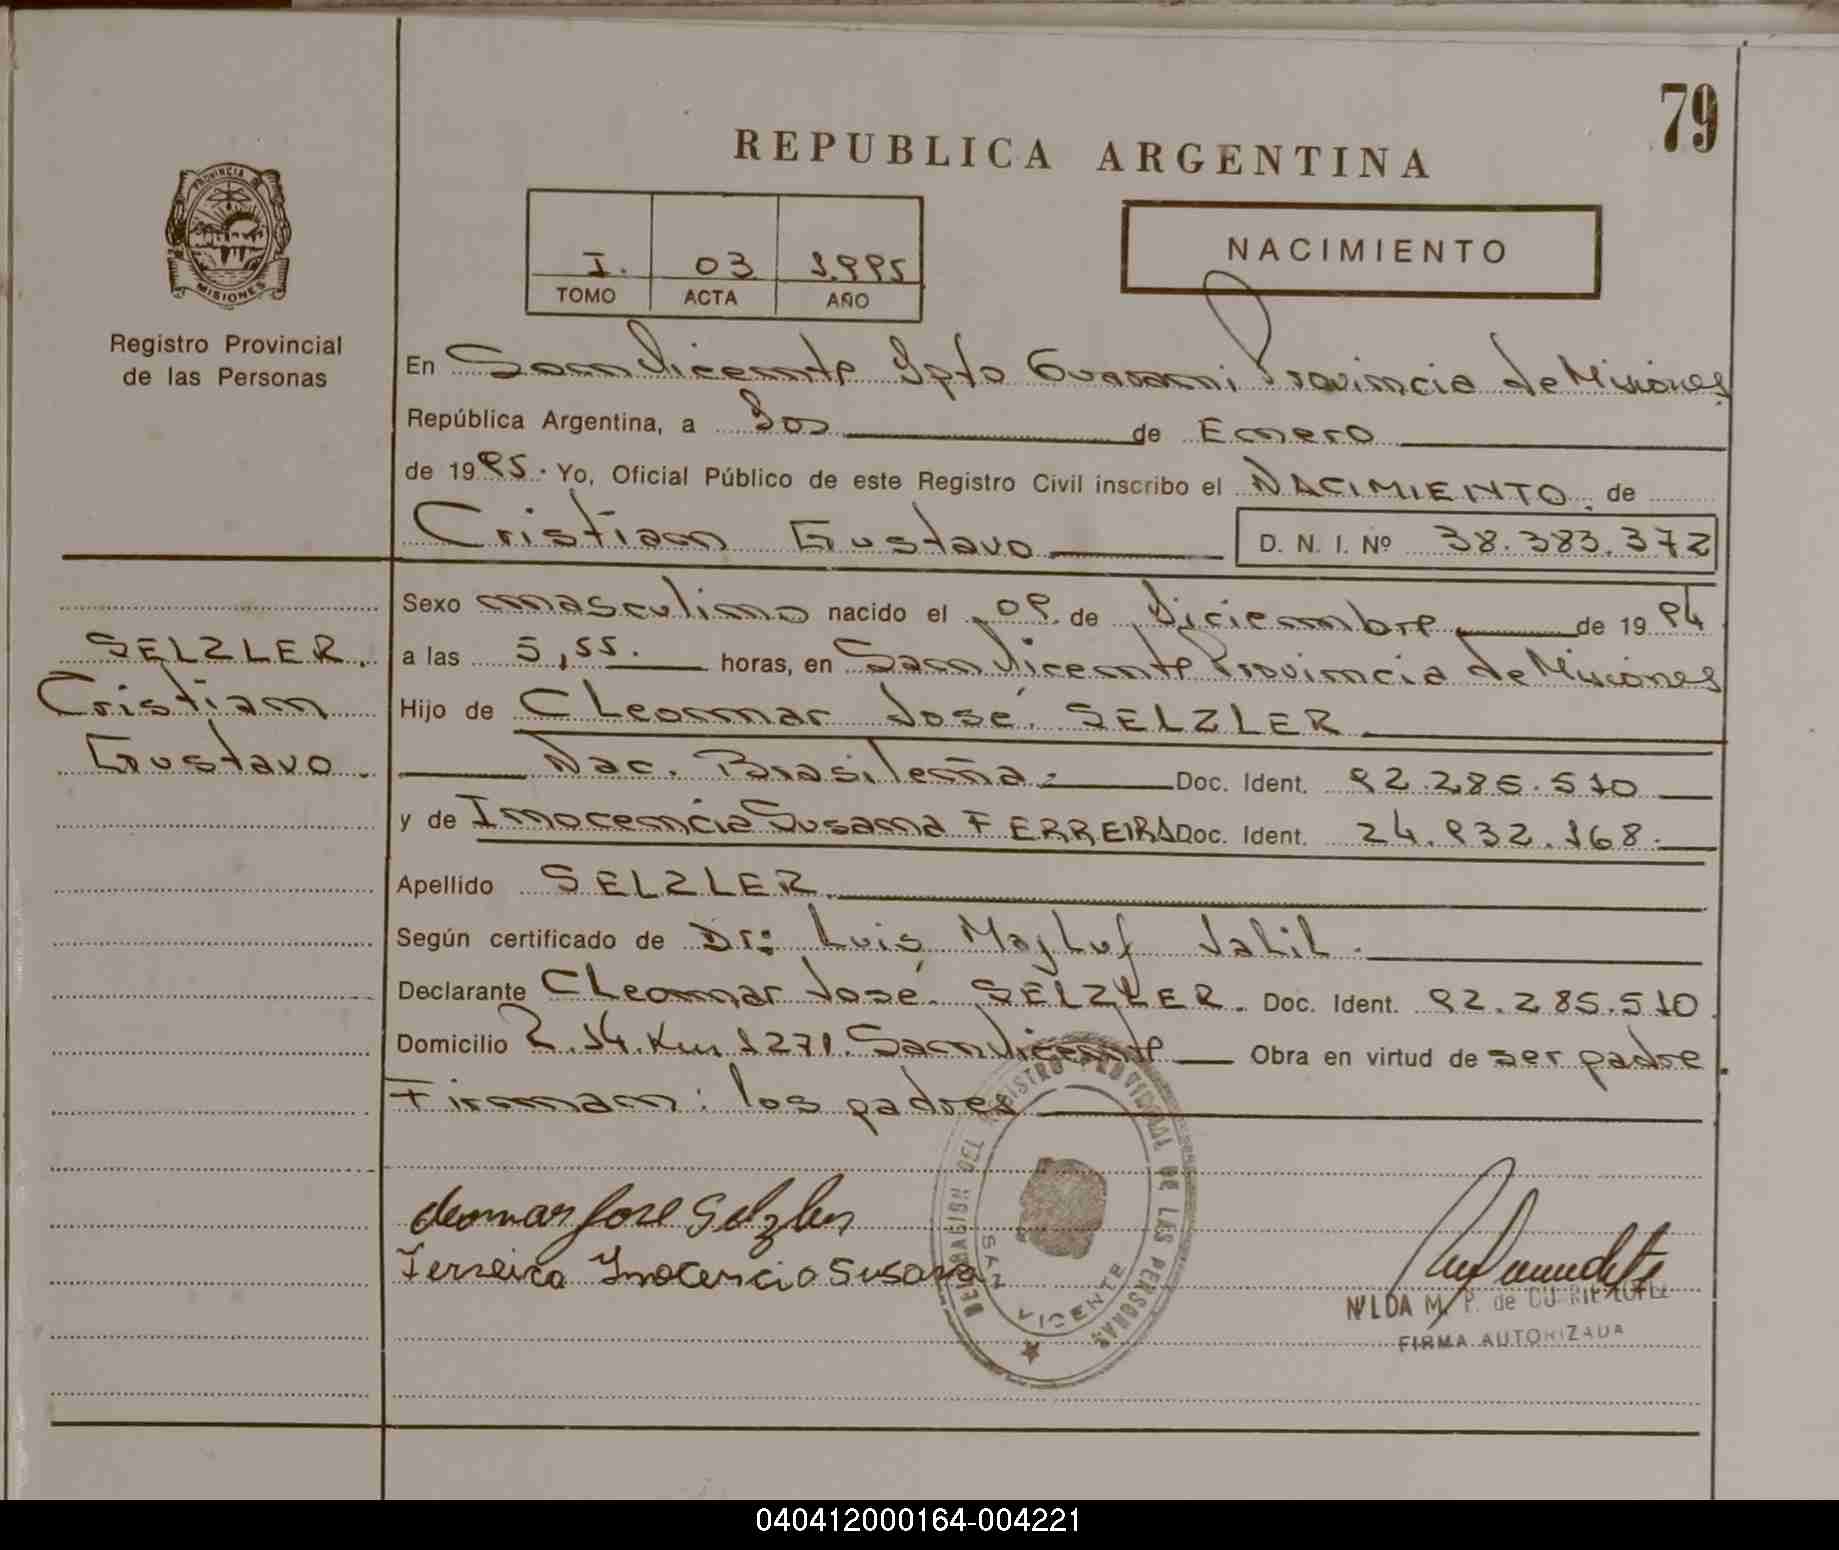 79
REPUBLICA ARGENTINA
I. 03 1.995
TOMO ACTA AÑO
NACIMIENTO
PROVINCIA DE MISIONES
Registro Provincial
de las Personas
En San Vicente Dpto Guarani Provincia de Misiones
República Argentina, a Dos de Enero
de 1995. Yo, Oficial Público de este Registro Civil inscribo el NACIMIENTO. de
Cristian Gustavo D. N. I. Nº 38.383.372
SELZLER.
Cristian
Gustavo.
Sexo masculino nacido el 09. de Diciembre de 1994
a las 5,55. horas, en San Vicente Provincia de Misiones
Hijo de Cleomar José SELZLER
Nac. Brasileña. Doc. Ident. 92.285.510
y de Inocencia Susana FERREIRA Doc. Ident. 24.932.168.
Apellido SELZLER
Según certificado de Dr: Luis Majluf Jalil.
Declarante Cleomar José SELZLER. Doc. Ident. 92.285.510
Domicilio R.14. Km 1271. San Vicente Obra en virtud de ser padre.
Firman: los padres
Cleomar Jose Selzler
Ferreira Inocencia Susana
DELEGACION DEL REGISTRO PROVINCIAL DE LAS PERSONAS
SAN VICENTE
NILDA M. P. de
FIRMA AUTORIZADA
040412000164-004221